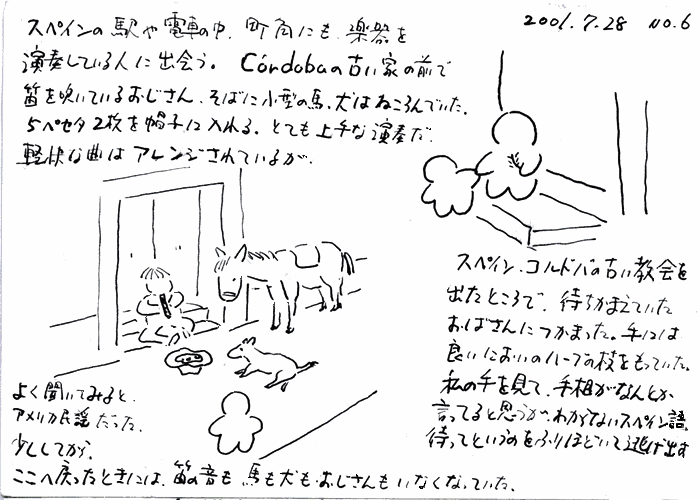 2001.7.28 NO.6
スペインの駅や電車の中、町角にも、楽器を
演奏している人に出会う。Córdobaの古い家の前で
笛を吹いているおじさん、そばに小型の馬、犬はねころんでいた。
5ペセタ2枚を帽子に入れる。とても上手な演奏だ。
軽快な曲はアレンジされているが、
よく聞いてみると、
アメリカ民謡だった。
少ししてから、
ここへ戻ったときには、笛の音も馬も犬も、おじさんもいなくなっていた。
スペイン、コルドバの古い教会を
出たところで、待ちかまえていた
おばさんにつかまった。手には
良いにおいのハーブの枝をもっていた。
私の手を見て、手相がなんとか
言ってると思うが、わからないスペイン語。
待ってというのをふりほどいて逃げ出す